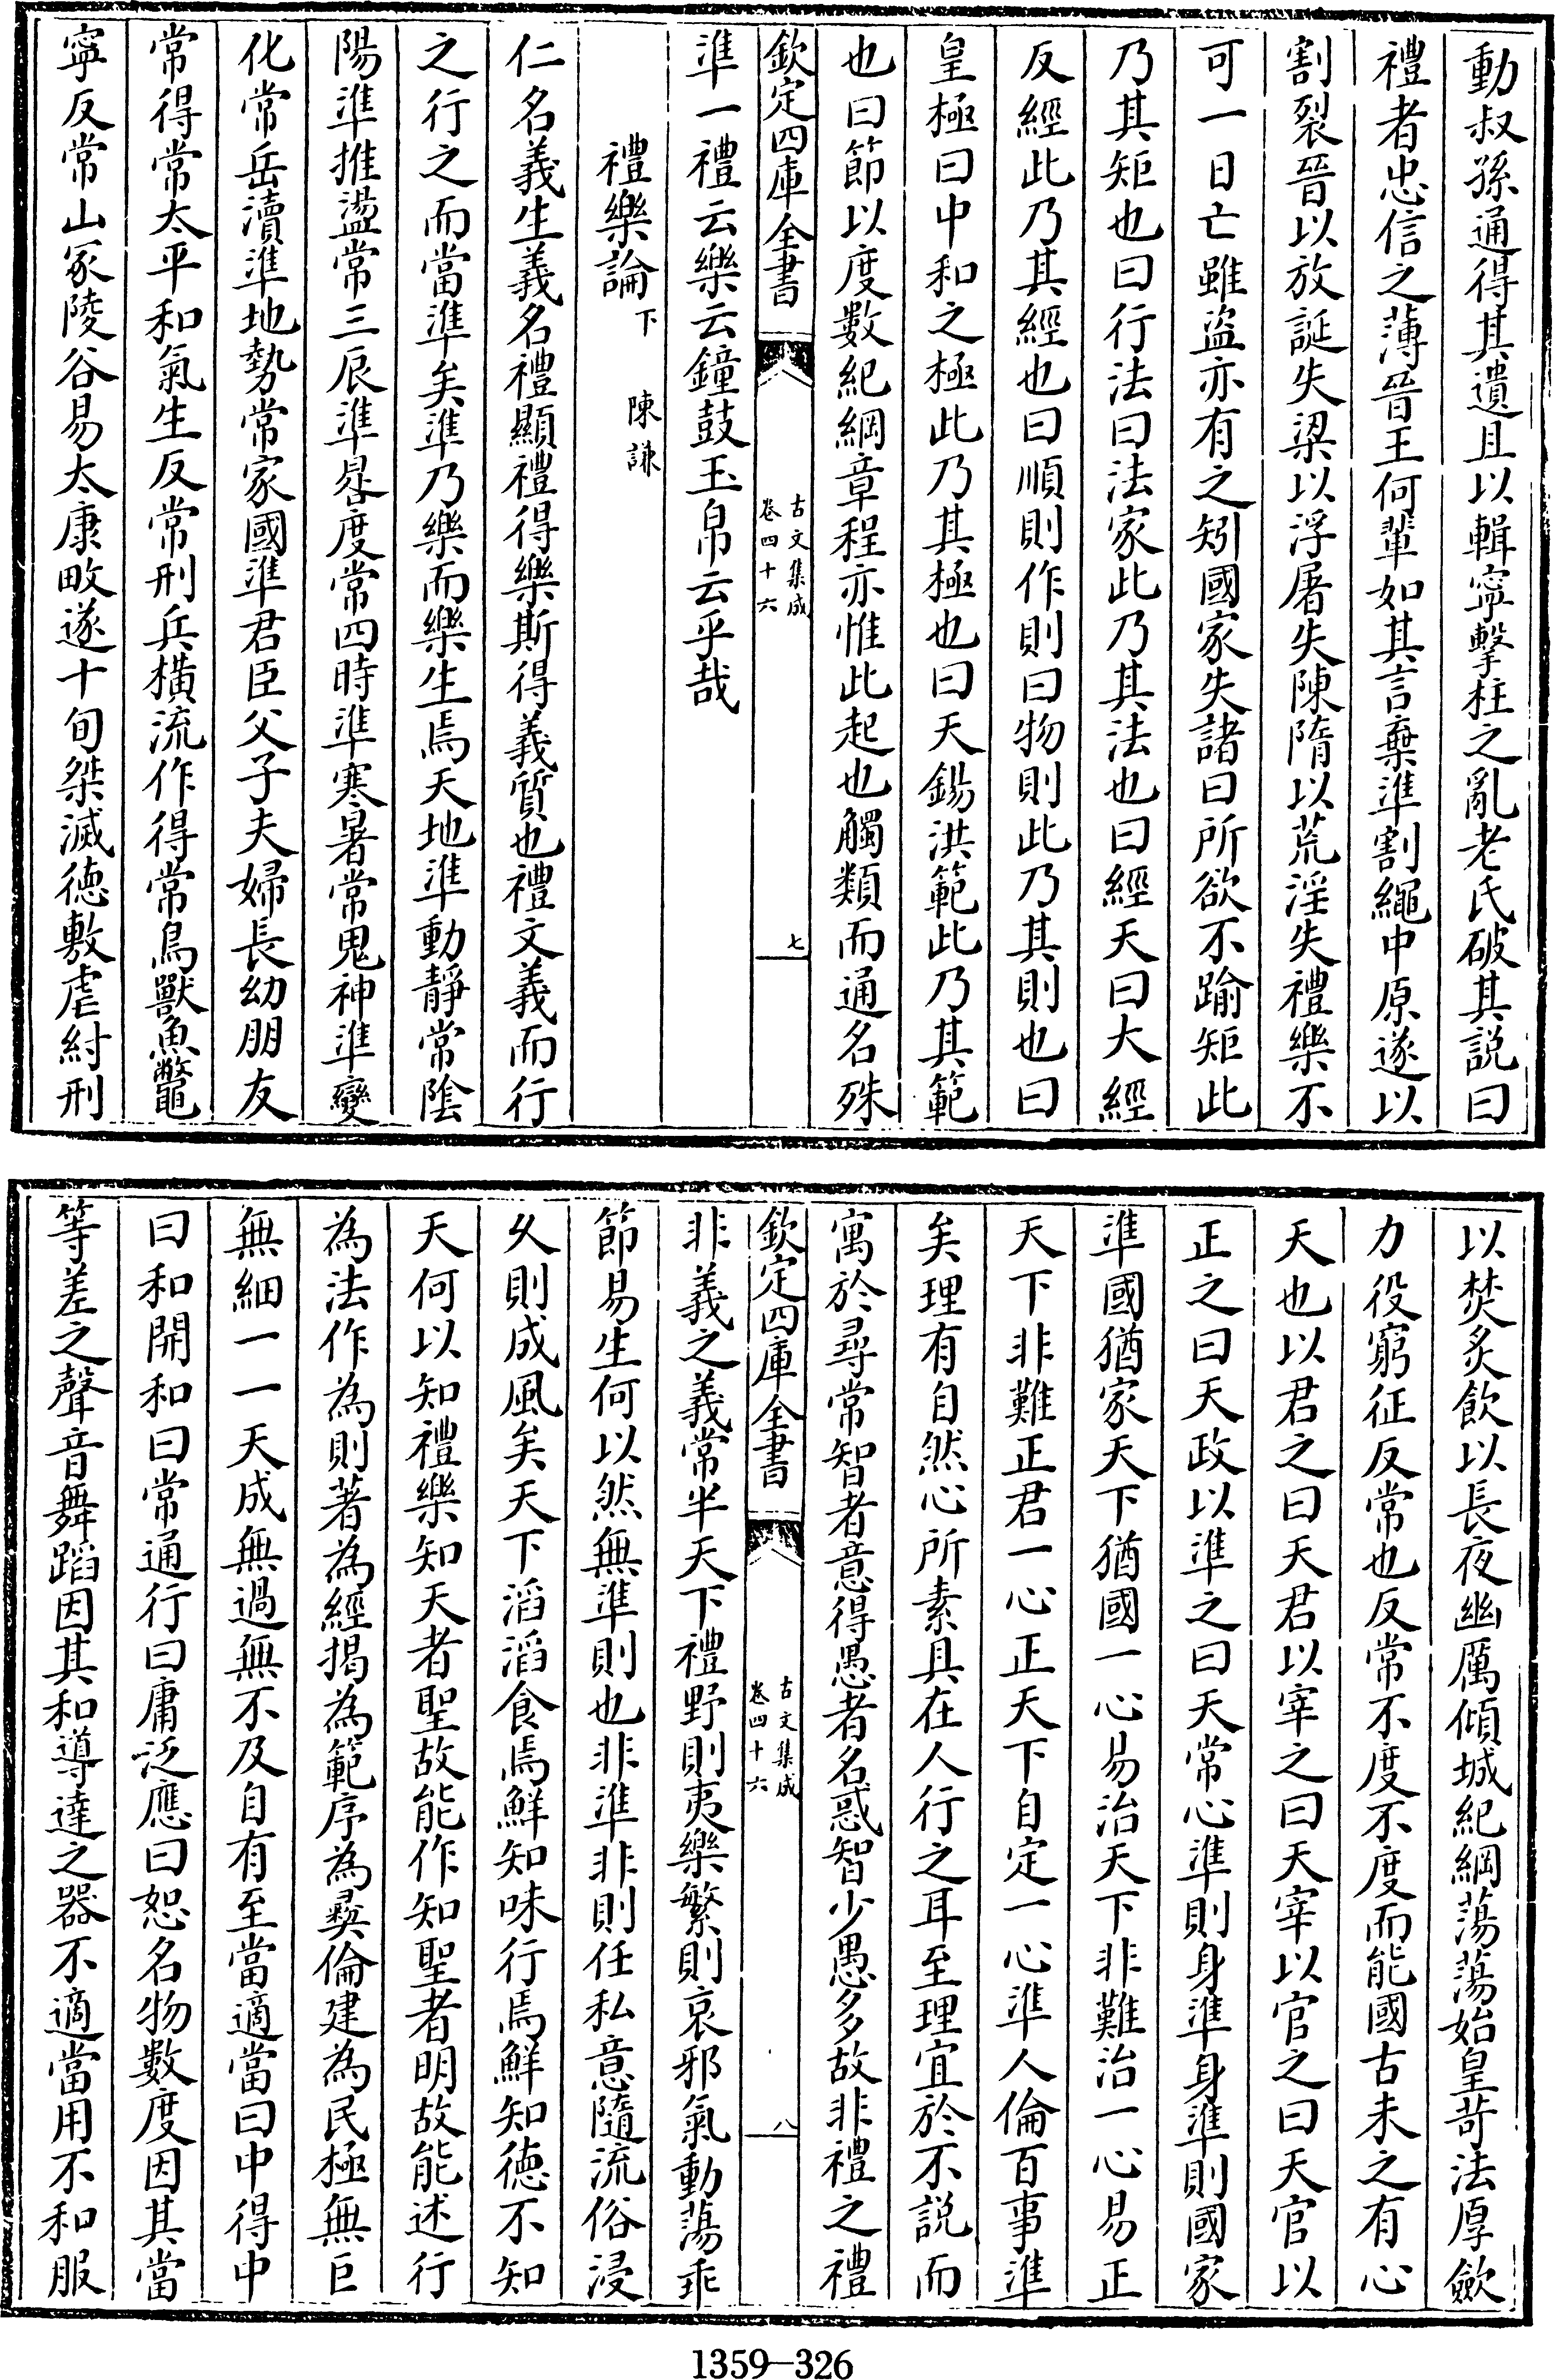 動叔孫通得其遺且以輯寧擊柱之亂老氏破其説曰
禮者忠信之薄晉王何輩如其言棄準割繩中原遂以
割裂晉以放誕失梁以浮屠失陳隋以荒淫失禮樂不
可一日亡雖盜亦有之矧國家失諸曰所欲不踰矩此
乃其矩也曰行法曰法家此乃其法也曰經天曰大經
反經此乃其經也曰順則作則曰物則此乃其則也曰
皇極曰中和之極此乃其極也曰天錫洪範此乃其範
也曰節以度數紀綱章程亦惟此起也觸類而通名殊
欽定四庫全書
古文集成
卷四十六
七
準一禮云樂云鐘鼓玉帛云乎哉
禮樂論下 陳謙
仁名義生義名禮顯禮得樂斯得義質也禮文義而行
之行之而當準矣準乃樂而樂生焉天地準動靜常陰
陽準推盪常三辰準晷度常四時準寒暑常鬼神準變
化常岳瀆準地勢常家國準君臣父子夫婦長幼朋友
常得常太平和氣生反常刑兵橫流作得常鳥獸魚鼈
寧反常山冢陵谷易太康畋遂十旬桀滅德敷虐紂刑
以焚炙飲以長夜幽厲傾城紀綱蕩蕩始皇苛法厚歛
力役窮征反常也反常不度不度而能國古未之有心
天也以君之曰天君以宰之曰天宰以官之曰天官以
正之曰天政以準之曰天常心準則身準身準則國家
準國猶家天下猶國一心易治天下非難治一心易正
天下非難正君一心正天下自定一心準人倫百事準
矣理有自然心所素具在人行之耳至理宜於不説而
寓於尋常智者意得愚者名惑智少愚多故非禮之禮
欽定四庫全書
古文集成
卷四十六
八
非義之義常半天下禮野則夷樂繁則哀邪氣動蕩乖
節易生何以然無準則也非準非則任私意隨流俗浸
久則成風矣天下滔滔食焉鮮知味行焉鮮知德不知
天何以知禮樂知天者聖故能作知聖者明故能述行
為法作為則著為經揭為範序為彛倫建為民極無巨
無細一一天成無過無不及自有至當適當曰中得中
曰和開和曰常通行曰庸泛應曰恕名物數度因其當
等差之聲音舞蹈因其和導達之器不適當用不和服
1359-326